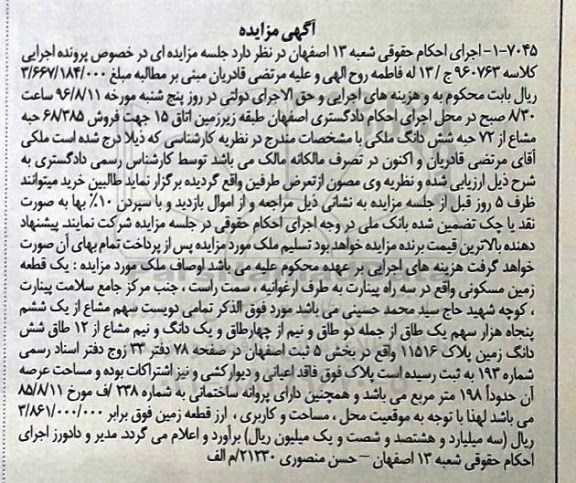 آگهی مزایده
۷۰۴۵-۱- اجرای احکام حقوقی شعبه ۱۳ اصفهان در نظر دارد جلسه مزایده ای در خصوص پرونده اجرایی
کلاسه ۹۶۰۷۶۳ ج / ۱۳ له فاطمه روح الهی و علیه مرتضی قادریان مبنی بر مطالبه مبلغ ۳/۶۶۷/۱۸۴/۰۰۰
ریال بابت محکوم به و هزینه های اجرایی و حق الاجرای دولتی در روز پنج شنبه مورخه ۹۶/۸/۱۱ ساعت
۸/۳۰ صبح در محل اجرای احکام دادگستری اصفهان طبقه زیرزمین اتاق ۱۵ جهت فروش ۶۸/۳۸۵ حبه
مشاع از ۷۲ حبه شش دانگ ملکی با مشخصات مندرج در نظریه کارشناسی که ذیلا درج شده است ملکی
آقای مرتضی قادریان و اکنون در تصرف مالکانه مالک می باشد توسط کارشناس رسمی دادگستری به
شرح ذیل ارزیابی شده و نظریه وی مصون ازتعرض طرفین واقع گردیده برگزار نماید طالبین خرید میتوانند
ظرف ۵ روز قبل از جلسه مزایده به نشانی ذیل مراجعه و از اموال بازدید و با سپردن ۱۰٪ بها به صورت
نقد یا چک تضمین شده بانک ملی در وجه اجرای احکام حقوقی در جلسه مزایده شرکت نمایند. پیشنهاد
دهنده بالاترین قیمت برنده مزایده خواهد بود تسلیم ملک مورد مزایده پس از پرداخت تمام بهای آن صورت
خواهد گرفت هزینه های اجرایی بر عهده محکوم علیه می باشد اوصاف ملک مورد مزایده : یک قطعه
زمین مسکونی واقع در سه راه پینارت به طرف ارغوانیه ، سمت راست ، جنب مرکز جامع سلامت پینارت
، کوچه شهید حاج سید محمد حسینی می باشد مورد فوق الذکر تمامی دویست سهم مشاع از یک ششم
پنجاه هزار سهم یک طاق از جمله دو طاق و نیم از چهارطاق و یک دانگ و نیم مشاع از ۱۲ طاق شش
دانگ زمین پلاک ۱۱۵۱۶ واقع در بخش ۵ ثبت اصفهان در صفحه ۷۸ دفتر ۳۳ زوج دفتر اسناد رسمی
شماره ۱۹۳ به ثبت رسیده است پلاک فوق فاقد اعیانی و دیوارکشی و نیز اشتراکات بوده و مساحت عرصه
آن حدوداً ۱۹۸ متر مربع می باشد و همچنین دارای پروانه ساختمانی به شماره ۲۳۸ /ف مورخ ۸۵/۸/۱۱
می باشد لهذا با توجه به موقعیت محل ، مساحت و کاربری ، ارز قطعه زمین فوق برابر ۳/۸۶۱/۰۰۰/۰۰۰
ریال (سه میلیارد و هشتصد و شصت و یک میلیون ریال) برآورد و اعلام می گردد. مدیر و دادورز اجرای
احکام حقوقی شعبه ۱۳ اصفهان – حسن منصوری ۲۱۲۳۰/م الف